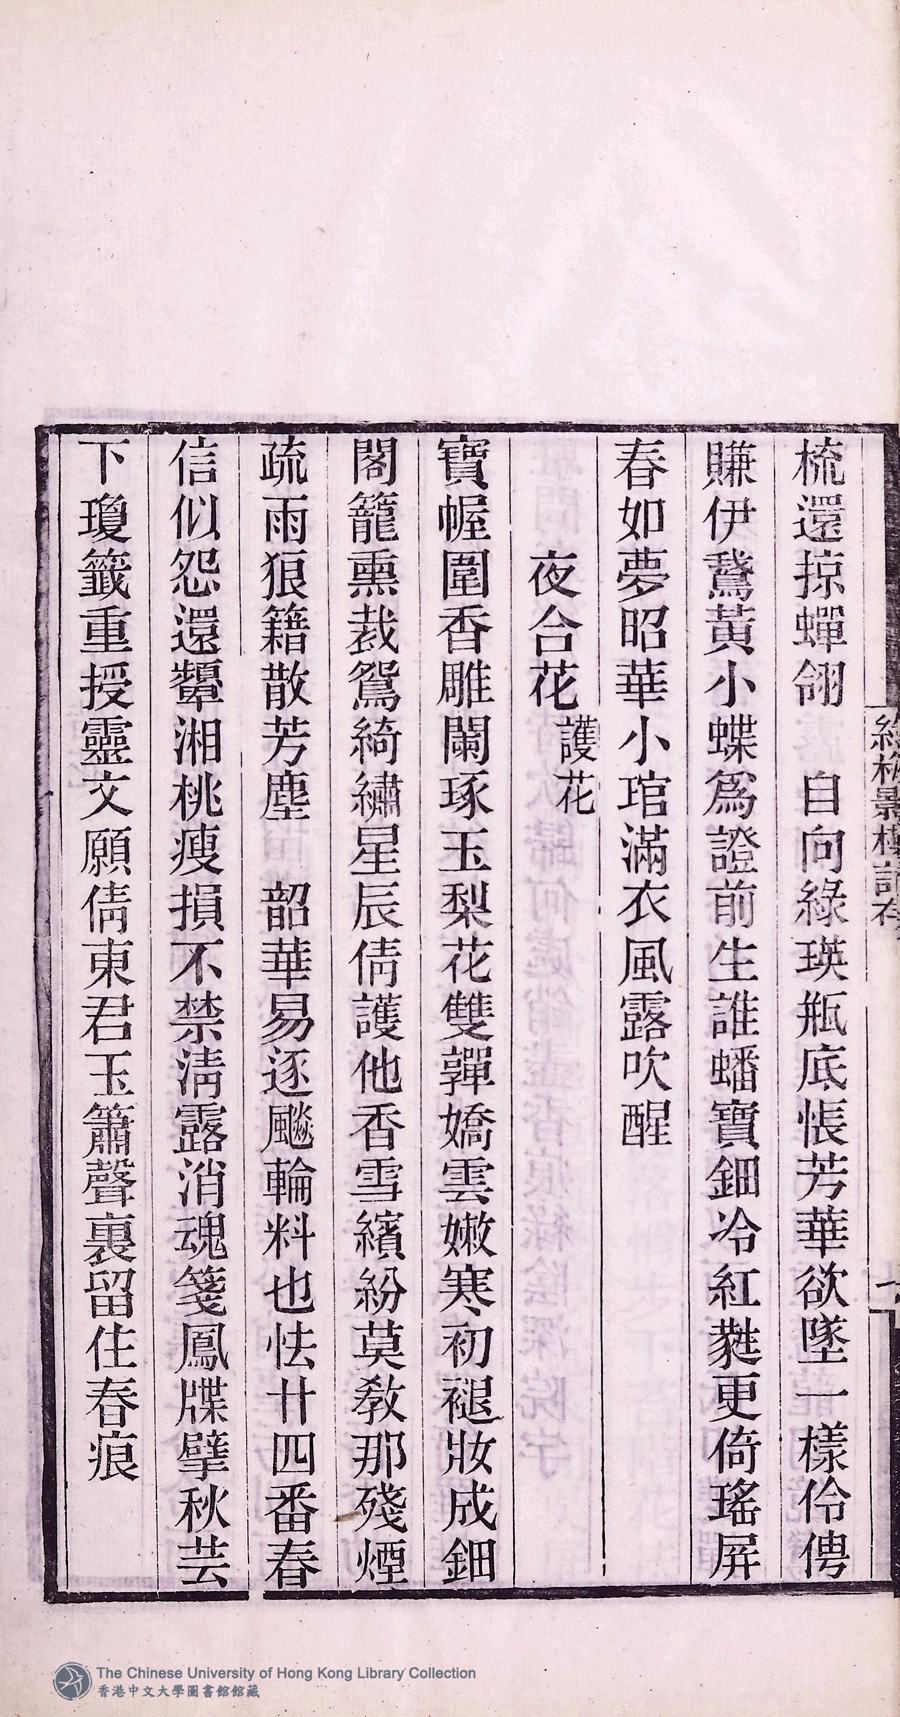 梳還掠蟬翎　自向綠瑛瓶底悵芳華欲墜一樣伶俜
賺伊鵞黃小蝶爲證前生誰蟠寶鈿冷紅蕤更倚瑤屏
春如夢昭華小琯滿衣風露吹醒
夜合花護花
寶幄圍香雕闌琢玉梨花雙嚲嬌雲嫩寒初褪妝成鈿
閣籠熏裁鴛綺繡星辰倩護他香雪繽紛莫教那殘煙
疏雨狼籍散芳塵　韶華易逐飈輪料也怯廿四番春
信似怨還顰湘桃瘦損不禁清露消魂箋鳳牒擘秋芸
下瓊籤重授靈文願倩東君玉簫聲裏留住春痕
The Chinese University of Hong Kong Library Collection
香港中文大學圖書館館藏